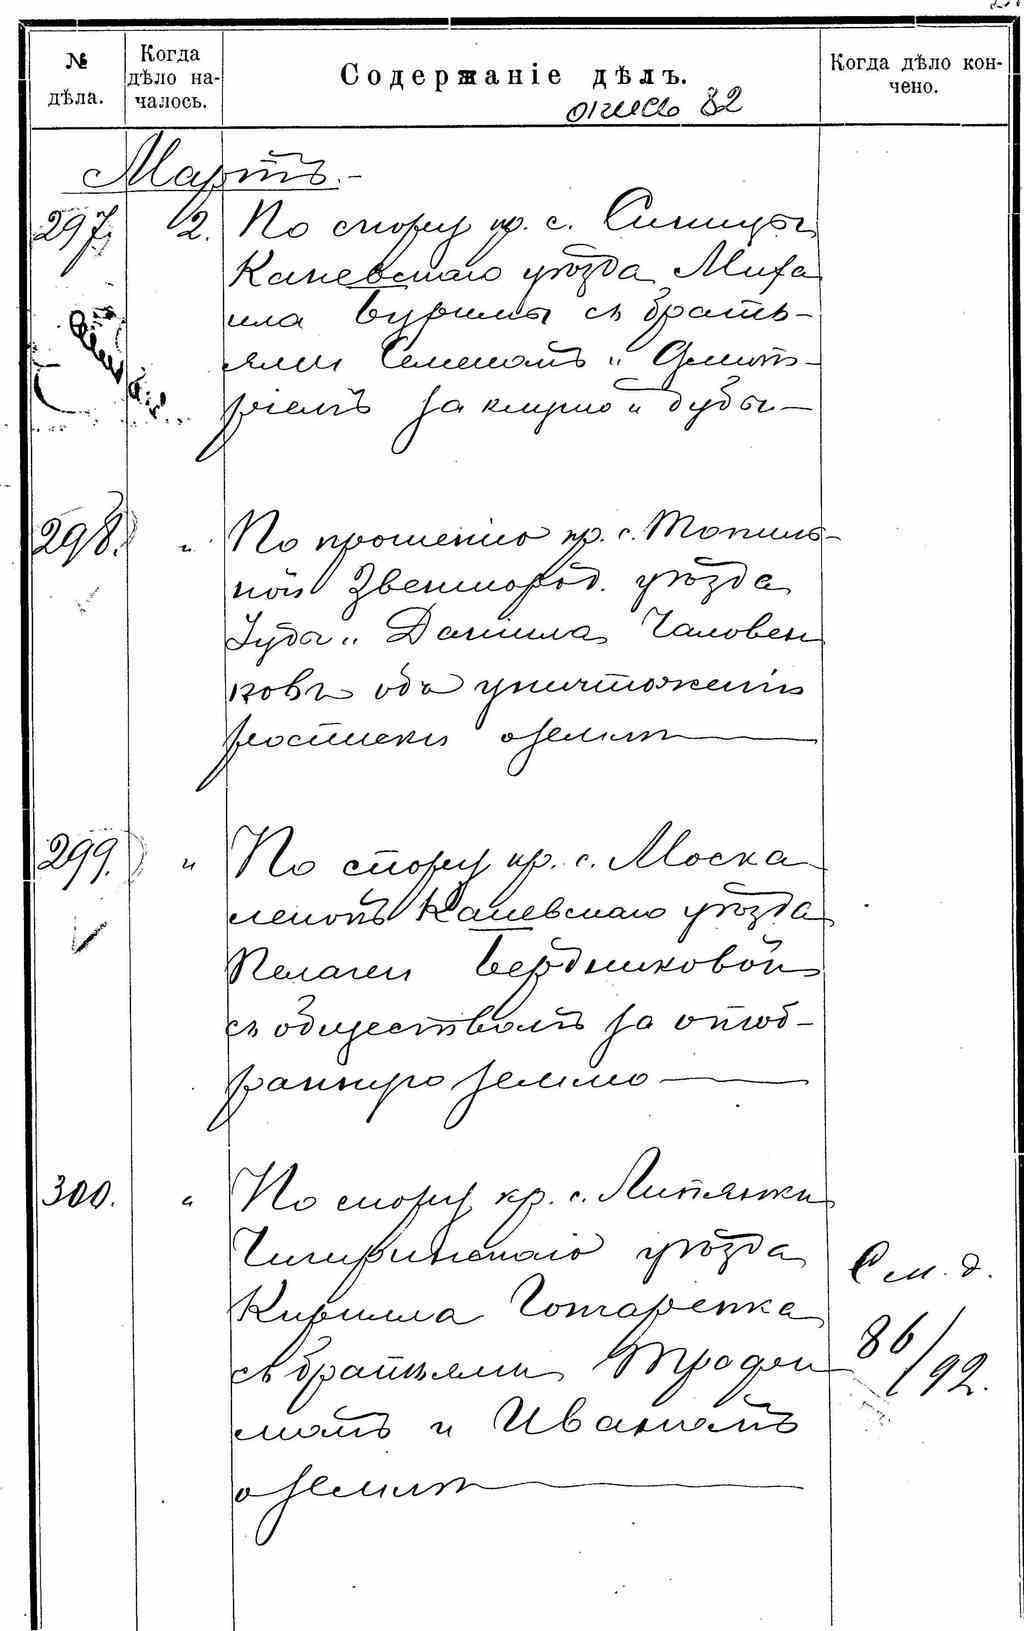 № дѣла.
Когда дѣло на-
чалось.
Содержаніе дѣлъ.
Когда дѣло кон-
чено.
опись 82
Мартъ.-
297 2. По спору кр. с. Синицы
Каневскаго уѣзда Миха
ила Бурилы съ брать-
ями Семеномъ и Дмит-
ріемъ за клуню и дубы-
298. " По прошенію кр. с. Топиль-
ной Звенигород. уѣзда
Іуды и Даніила Чаловен
ковъ объ уничтоженіи
росписки о землѣ
299. " По спору кр. с. Моска
ленокъ Каневскаго уѣзда
Пелагеи Бердниковой
съ обществомъ за отоб-
ранную землю
300. " По спору кр. с. Липянки
Чигиринскаго уѣзда
Кирилла Гончаренка
съ братьями Трофи
момъ и Иваномъ
о землѣ
См. д.
86/92.